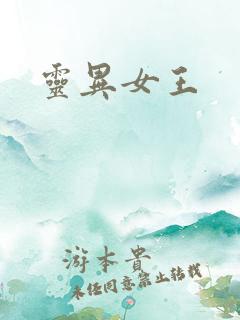 靈異女王
游本貴
未經同意禁止轉載